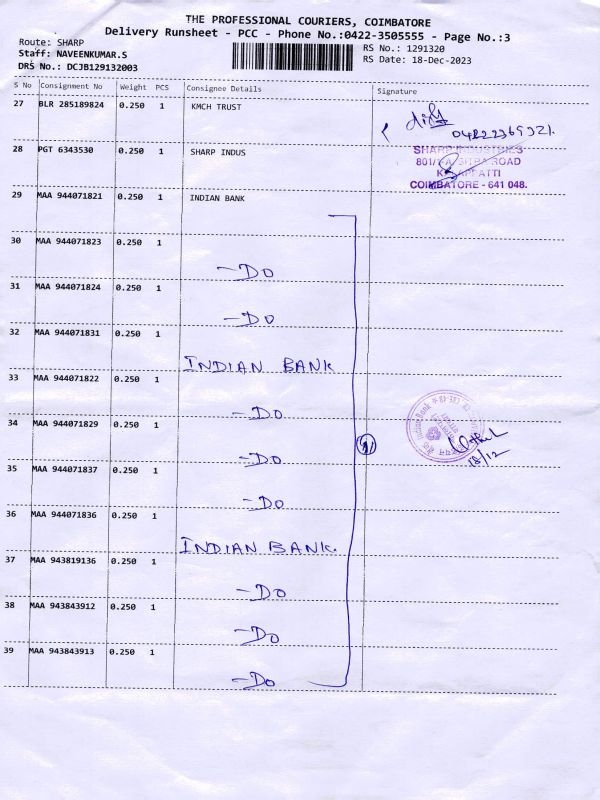 THE PROFESSIONAL COURIERS, COIMBATORE
Delivery Runsheet - PCC - Phone No.:0422-3505555 - Page No.:3
Route: SHARP
RS No.: 1291320
Staff: NAVEENKUMAR.S
RS Date: 18-Dec-2023
DRS No.: DCJB129132003
S No Consignment No Weight PCS Consignee Details Signature
27 BLR 285189824 0.250 1 KMCH TRUST
28 PGT 6343530 0.250 1 SHARP INDUS
SHARP INDUSTRIES
ROAD
COIMBATORE - 641 048.
29 MAA 944071821 0.250 1 INDIAN BANK
30 MAA 944071823 0.250 1
- Do
31 MAA 944071824 0.250 1
- Do
32 MAA 944071831 0.250 1
INDIAN BANK
33 MAA 944071822 0.250 1
- Do
34 MAA 944071829 0.250 1
- Do
Indian Bank
18/12
35 MAA 944071837 0.250 1
- Do
36 MAA 944071836 0.250 1
INDIAN BANK.
37 MAA 943819136 0.250 1
- Do
38 MAA 943843912 0.250 1
- Do
39 MAA 943843913 0.250 1
- Do